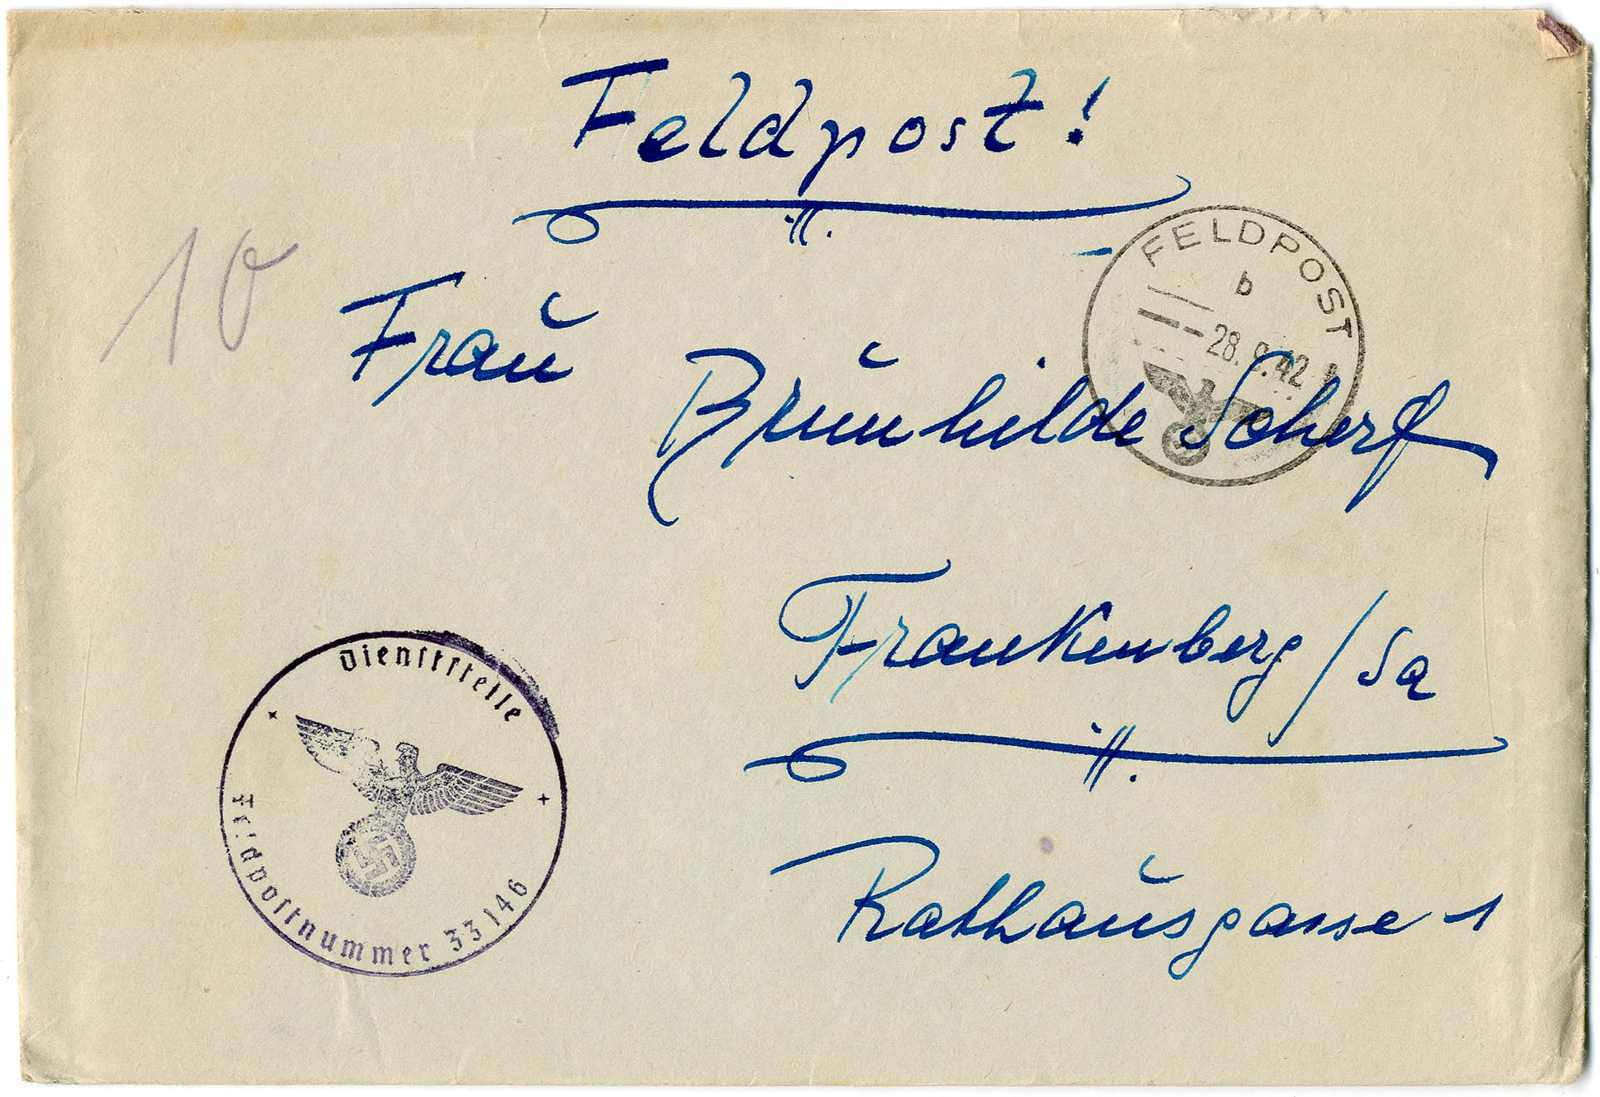 Feldpost!
10
FELDPOST
b
28.9.42
Frau
Brunhilde Scherf
Frankenberg/Sa
Rathausgasse 1
Dienststelle
Feldpostnummer 33146